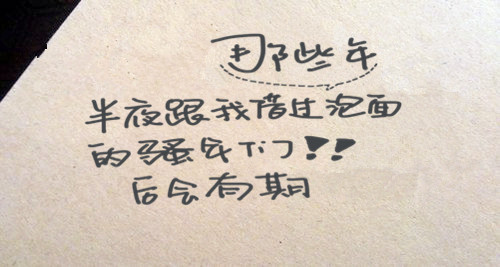 那些年
半夜跟我借过泡面
的骚年们!!
后会有期